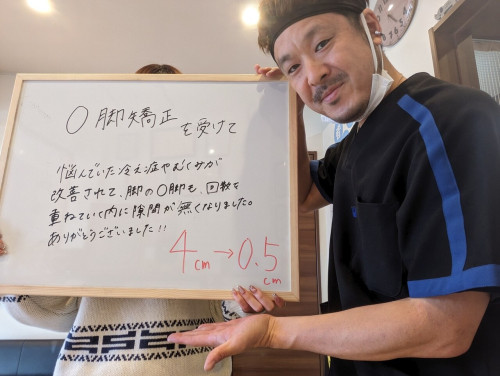 O脚矯正を受けて
悩んでいた冷え症やむくみが
改善されて、脚のO脚も、回数を
重ねていく内に隙間が無くなりました。
ありがとうございました!!
4cm→0.5cm